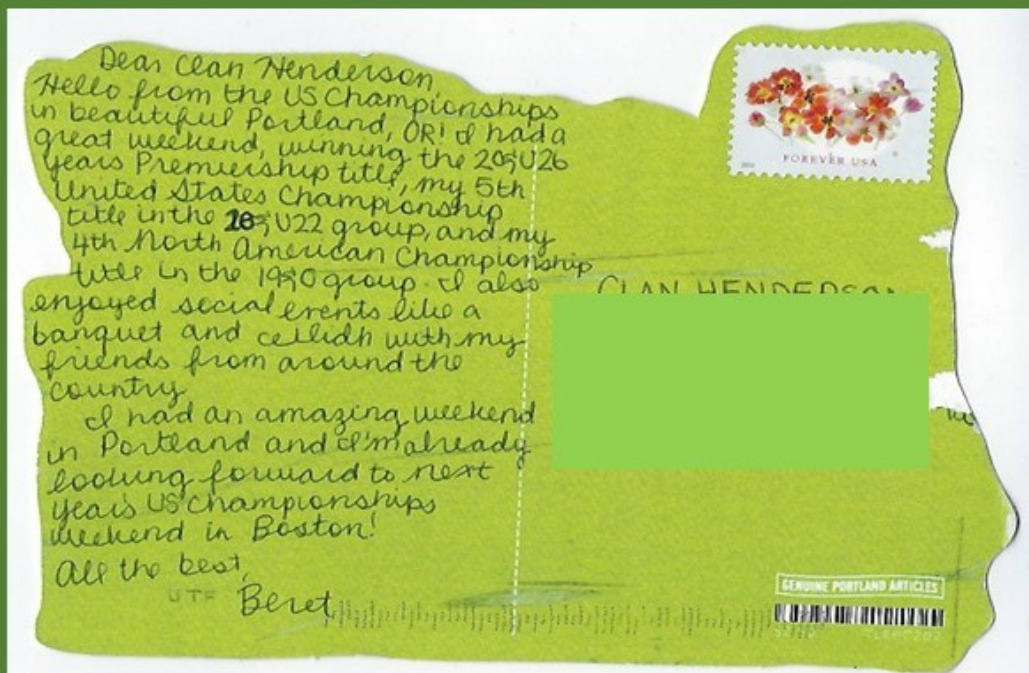 Dear Clan Henderson,
Hello from the US Championships
in beautiful Portland, OR! I had a
great weekend, winning the 20≤U26
years Premiership title, my 5th
United States Championship
title in the 20≤U22 group, and my
4th North American Championship
title in the 19≤0 group. I also
enjoyed social events like a
banquet and ceilidh with my
friends from around the
country.
I had an amazing weekend
in Portland and I'm already
looking forward to next
years US Championships
weekend in Boston!
All the best,
Beret
FOREVER USA
CLAN HENDERSON
GENUINE PORTLAND ARTICLES